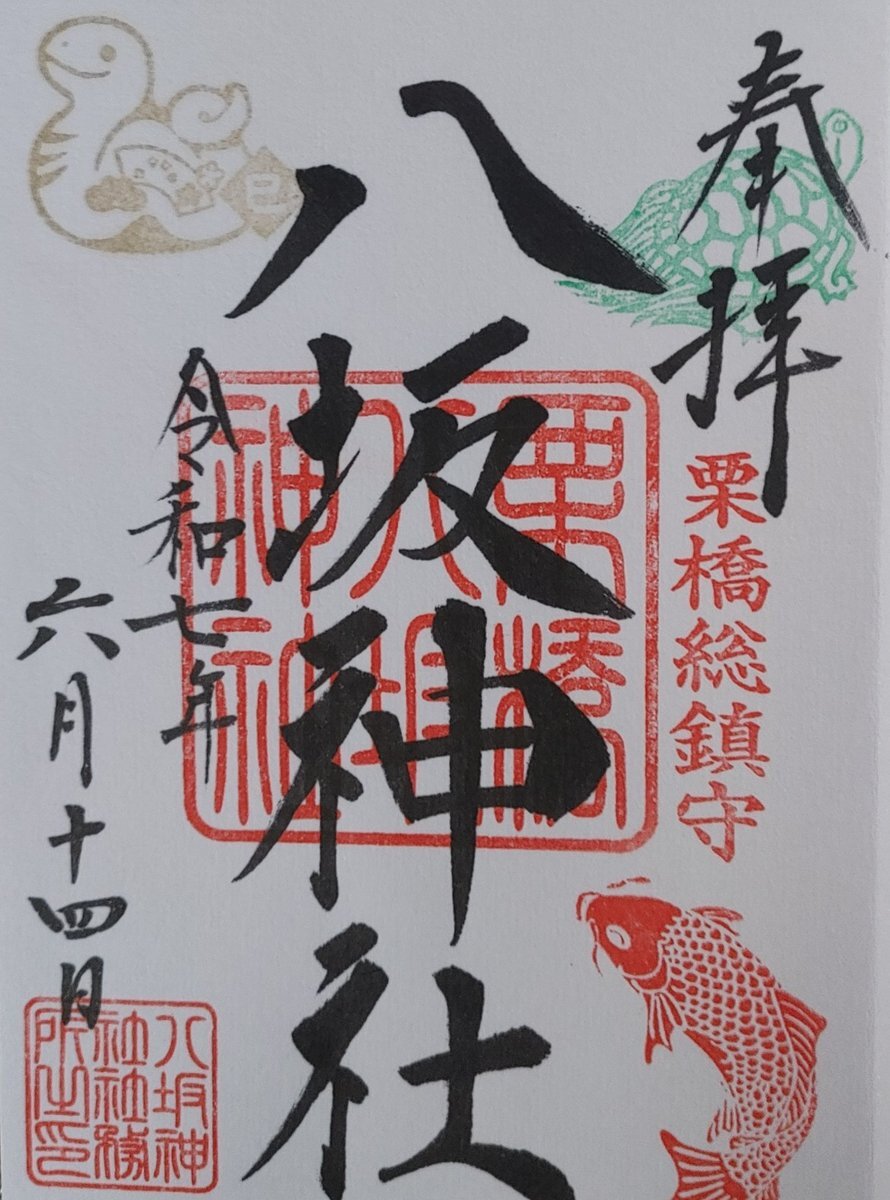 奉拝
栗橋総鎮守
八坂神社
栗橋
八坂
神社
令和七年
六月十四日
巳
八坂神
社社務
所之印